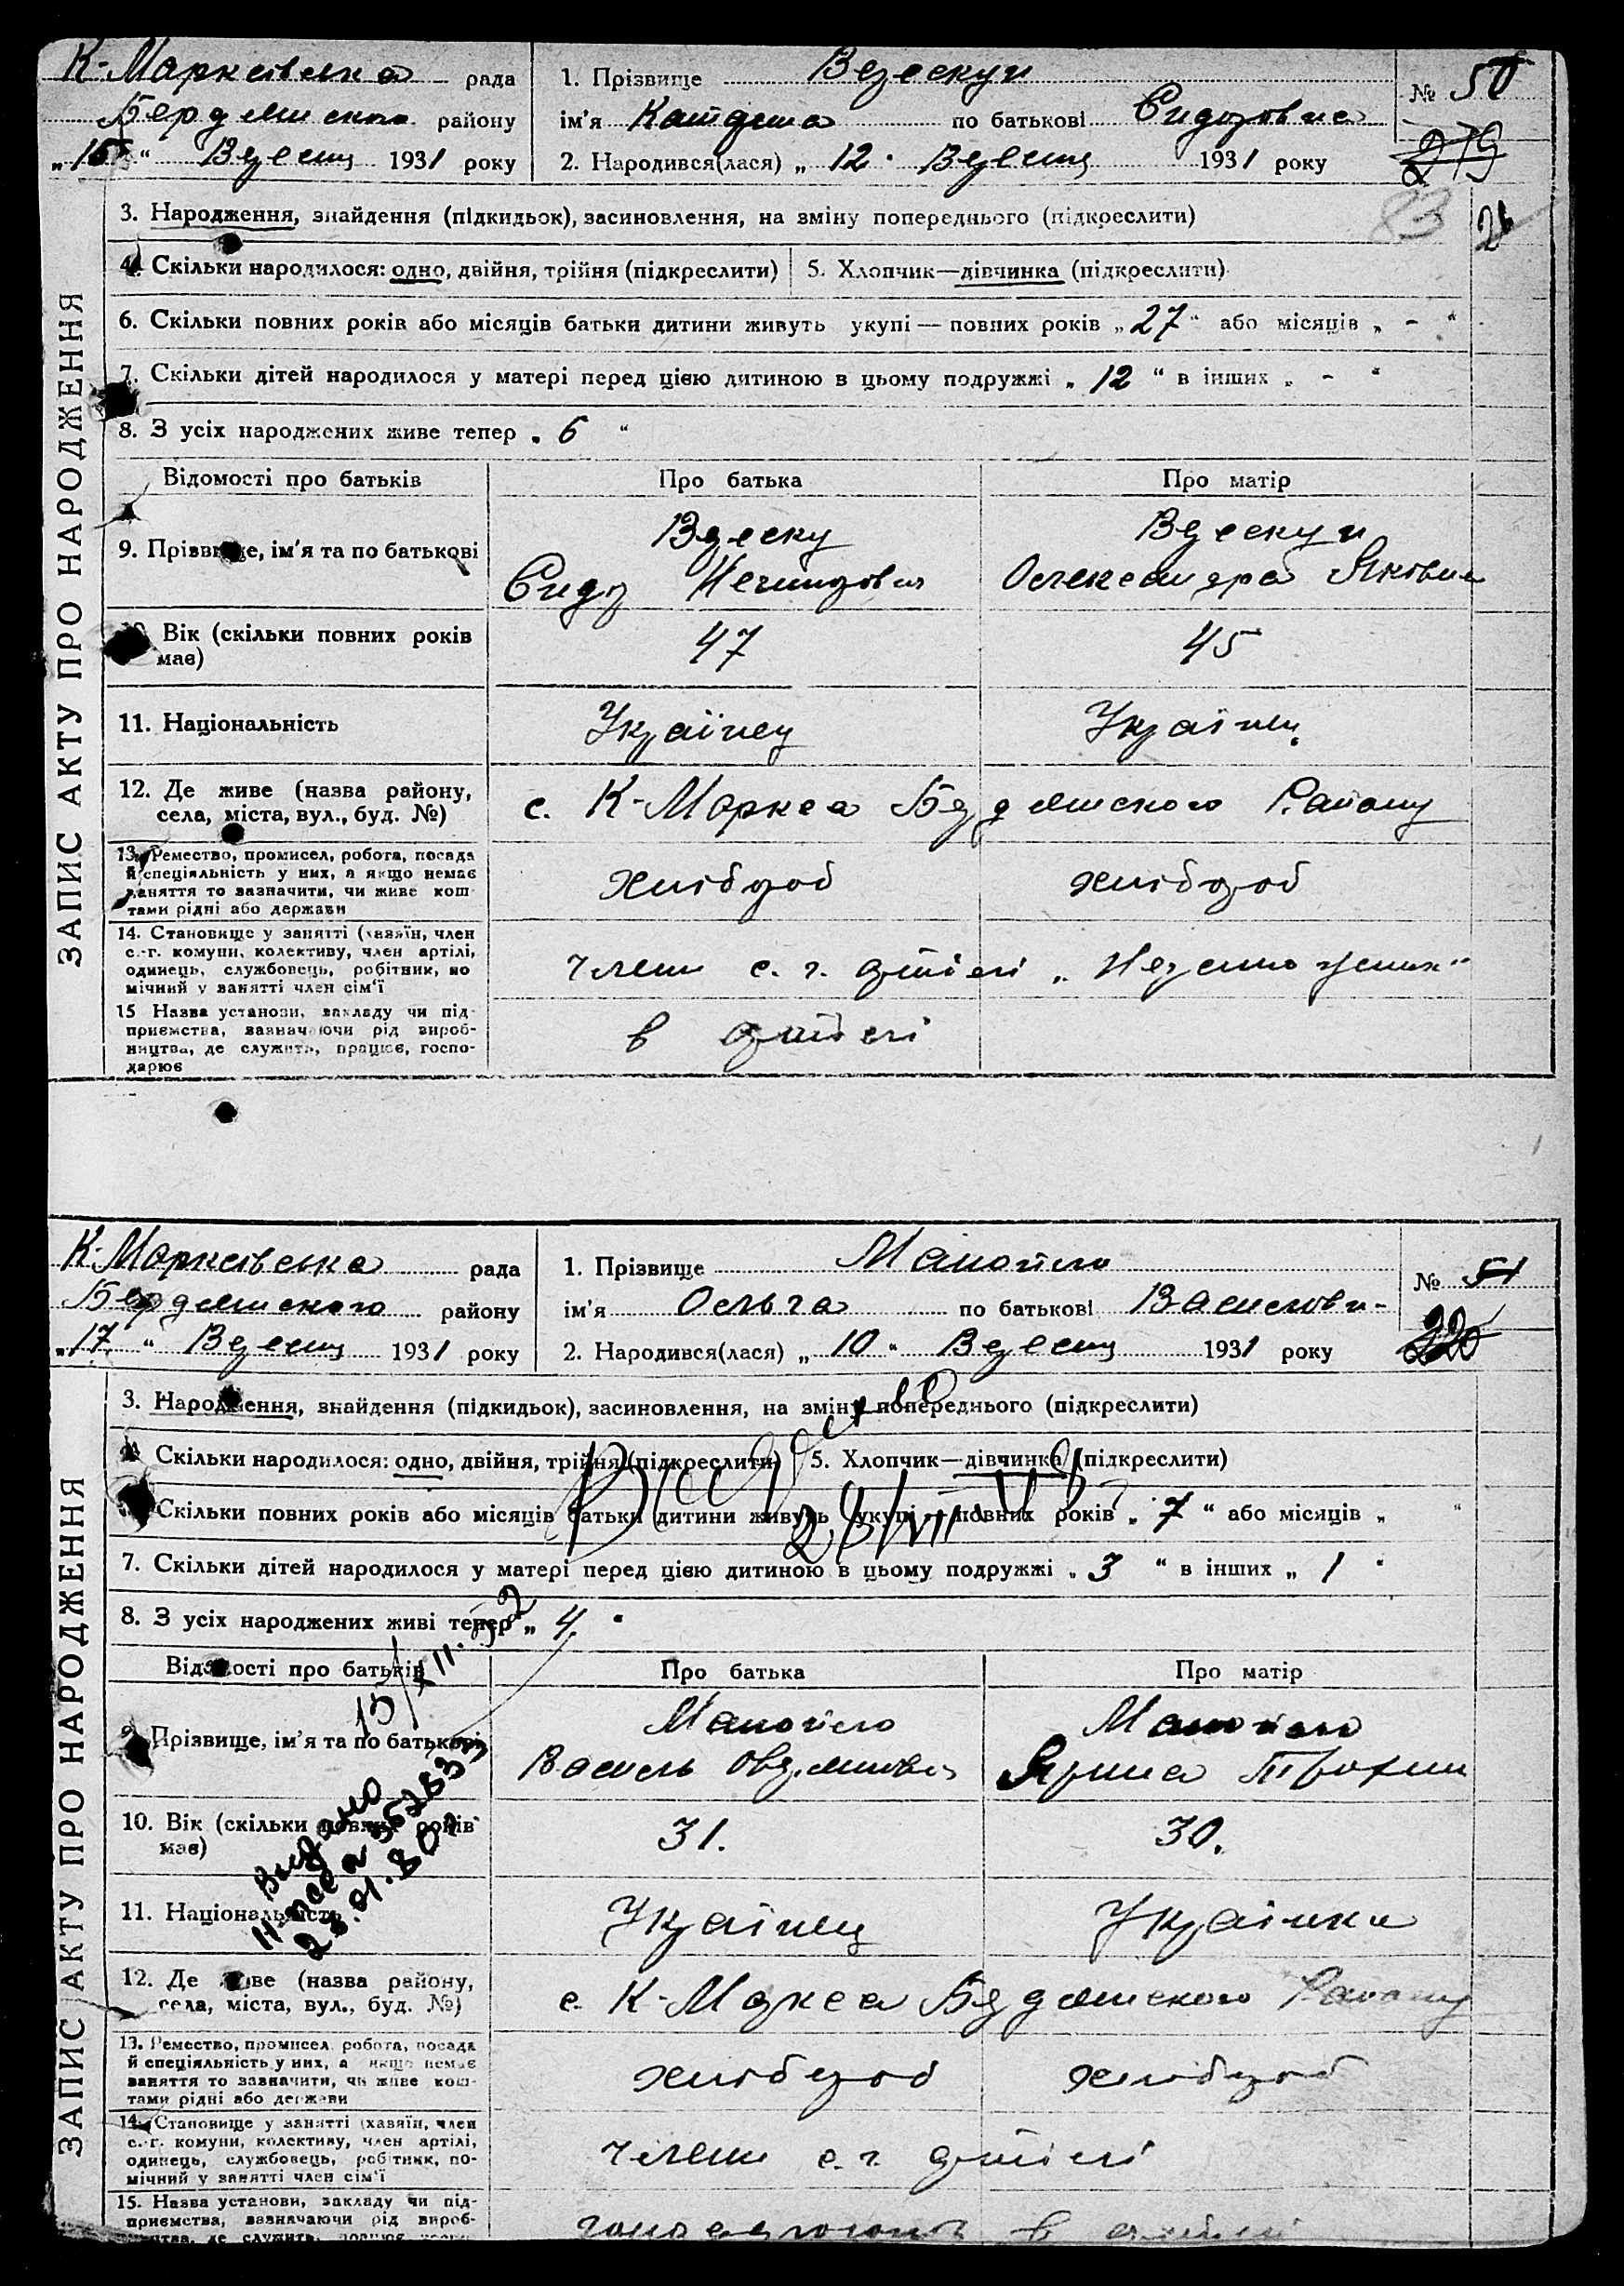 К-Марксівська рада
Бердянського району
„15“ Вересня 1931 року
1. Прізвище
ім'я по батькові Сидоровна
2. Народився(лася) „12“ Вересня 1931 року
№ 50
279
83
26
ЗАПИС АКТУ ПРО НАРОДЖЕННЯ
3. Народження, знайдення (підкидьок), засиновлення, на зміну попереднього (підкреслити)
4. Скільки народилося: одно, двійня, трійня (підкреслити)
5. Хлопчик—дівчинка (підкреслити)
6. Скільки повних років або місяців батьки дитини живуть укупі — повних років „27“ або місяців „-“
7. Скільки дітей народилося у матері перед цією дитиною в цьому подружжі „12“ в інших „-“
8. З усіх народжених живе тепер „6“
Відомості про батьків
Про батька
Про матір
9. Прізвище, ім'я та по батькові
Сидор
Олександра Яковна
10. Вік (скільки повних років
має)
47
45
11. Національність
Українец
Українец
12. Де живе (назва району,
села, міста, вул., буд. №)
с. К-Маркса Бердянського Району
13. Ремество, промисел, робота, посада
й спеціяльність у них, а якщо немає
заняття то зазначити, чи живе кош-
тами рідні або держави
хлібороб
хлібороб
14. Становище у занятті (хазяїн, член
с.-г. комуни, колективу, член артілі,
одинець, службовець, робітник, по
мічний у занятті член сім'ї
член с. г. артілі „Незаможник“
15 Назва установи, закладу чи під-
приємства, зазначаючи рід вироб-
ництва, де служить, працює, госпо-
дарює
в артілі
К-Марксівська рада
Бердянського району
„17“ Вересня 1931 року
1. Прізвище Манойло
ім'я Ольга по батькові Василовн-
2. Народився(лася) „10“ Вересня 1931 року
№ 51
220
ЗАПИС АКТУ ПРО НАРОДЖЕННЯ
3. Народження, знайдення (підкидьок), засиновлення, на зміну попереднього (підкреслити)
4. Скільки народилося: одно, двійня, трійня (підкреслити)
5. Хлопчик—дівчинка (підкреслити)
6. Скільки повних років або місяців батьки дитини живуть укупі — повних років „7“ або місяців „ “
7. Скільки дітей народилося у матері перед цією дитиною в цьому подружжі „3“ в інших „1“
8. З усіх народжених живі тепер „4“
Відомості про батьків
Про батька
Про матір
9. Прізвище, ім'я та по батькові
Манойло
Манойло
Василь
10. Вік (скільки повних років
має)
31.
30.
Видано
11. Національність
Українец
Українка
12. Де живе (назва району,
села, міста, вул., буд. №)
с. К-Маркса Бердянського Району
13. Ремество, промисел, робота, посада
й спеціяльність у них, а якщо немає
заняття то зазначити, чи живе кош-
тами рідні або держави
хлібороб
хлібороб
14. Становище у занятті (хазяїн, член
с.-г. комуни, колективу, член артілі,
одинець, службовець, робітник, по-
мічний у занятті член сім'ї
член с. г. артілі
15. Назва установи, закладу чи під-
приємства, зазначаючи рід вироб-
ництва, де служить, працює, госпо-
в артілі